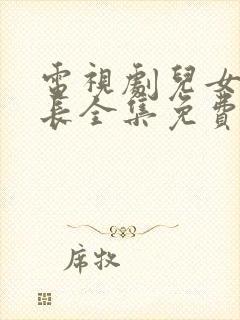 電視劇兒女
長全集免費
席牧